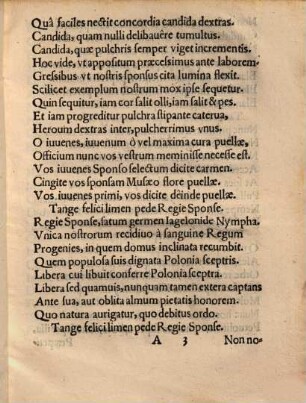 Quâ faciles nectit concordia candida dextras.
Candida, quam nulli delibauêre tumultus.
Candida, quæ pulchris semper viget incrementis.
Hoc vide, vt appositum præcessimus ante laborem.
Gressibus vt nostris sponsus cita lumina flexit.
Scilicet exemplum nostrum mox ipse sequetur.
Quin sequitur, iam cor salit olli, iam salit & pes.
Et iam progreditur pulchra stipante caterua,
Heroum dextras inter, pulcherrimus vnus.
O iuuenes, iuuenum ô vel maxima cura puellæ,
Officium nunc vos vestrum meminisse necesse est.
Vos iuuenes Sponso selectum dicite carmen.
Cingite vos sponsam Musæo flore puellæ.
Vos iuuenes primi, vos dicite deinde puellæ.
Tange felici limen pede Regie Sponse.
Regie Sponse, satum germen Iagelonide Nympha.
Vnica nostrorum recidiuo à sanguine Regum
Progenies, in quem domus inclinata recumbit.
Quem populosa suis dignata Polonia sceptris.
Libera cui libuit conferre Polonia sceptra.
Libera sed quamuis, nunquam tamen extera captans
Ante sua, aut oblita almum pietatis honorem.
Quo natura aurigatur, quo debitus ordo.
Tange felici limen pede Regie Sponse.
A 3 Non no-